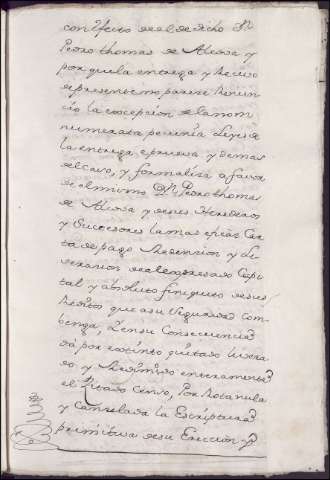 con efecto de el dicho Dn
Pedro thomas de Alcosa y
por que la entrega y Recivo
de presente no parese Renun
cio la excepcion de la non
numerata pecunia Leyes de
la entrega e prueva y demas
del caso, y formalisa a favor
de el mismo Dn Pedro thomas
de Alcosa y de sus Herederos
y Subcesores la mas eficas Car
ta de pago Redencion y Li
beracion de el expresado Capi
tal y absoluto finiquito de sus
Reditos que a su Seguridad com
benga, Y en su Consecuencia
da por extinto quitado livera
do y Redimido enteramente
el Zitado Censo, Por Rota nula
y Canselada la Escriptura
primitiva de su Ereccion y